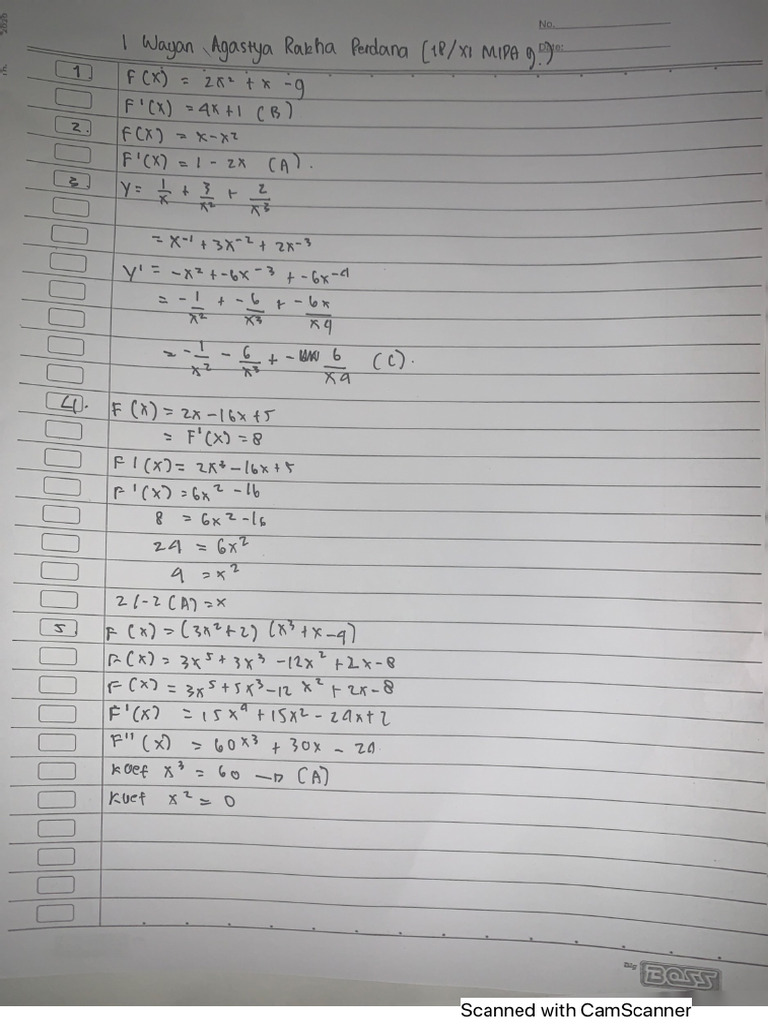 No.
Date:
I Wayan Agastya Rakha Perdana (18/XI MIPA 9.)
1 F(x) = 2x² + x - 9
F'(x) = 4x+1 (B)
2. f(x) = x-x²
F'(x) = 1 - 2x (A).
3 Y = 1/x + 3/x² + 2/x³
= x⁻¹ + 3x⁻² + 2x⁻³
Y' = -x² + -6x⁻³ + -6x⁻⁴
= -1/x² + -6/x³ + -6x/x4
= -1/x² - 6/x³ + - 6/x4 (C).
4. F(x) = 2x - 16x + 5
= F'(x) = 8
F1(x) = 2x³ - 16x + 5
F'(x) = 6x² - 16
8 = 6x² - 16
24 = 6x²
4 = x²
2/-2 (A) = x
5 F(x) = (3x²+2) (x³+x-4)
F(x) = 3x⁵ + 3x³ - 12x² + 2x - 8
F(x) = 3x⁵ + 5x³ - 12 x² + 2x - 8
F'(x) = 15x⁴ + 15x² - 24x + 2
F''(x) = 60x³ + 30x - 24
koef x³ = 60 → (A)
koef x² = 0
Big BOSS
Scanned with CamScanner